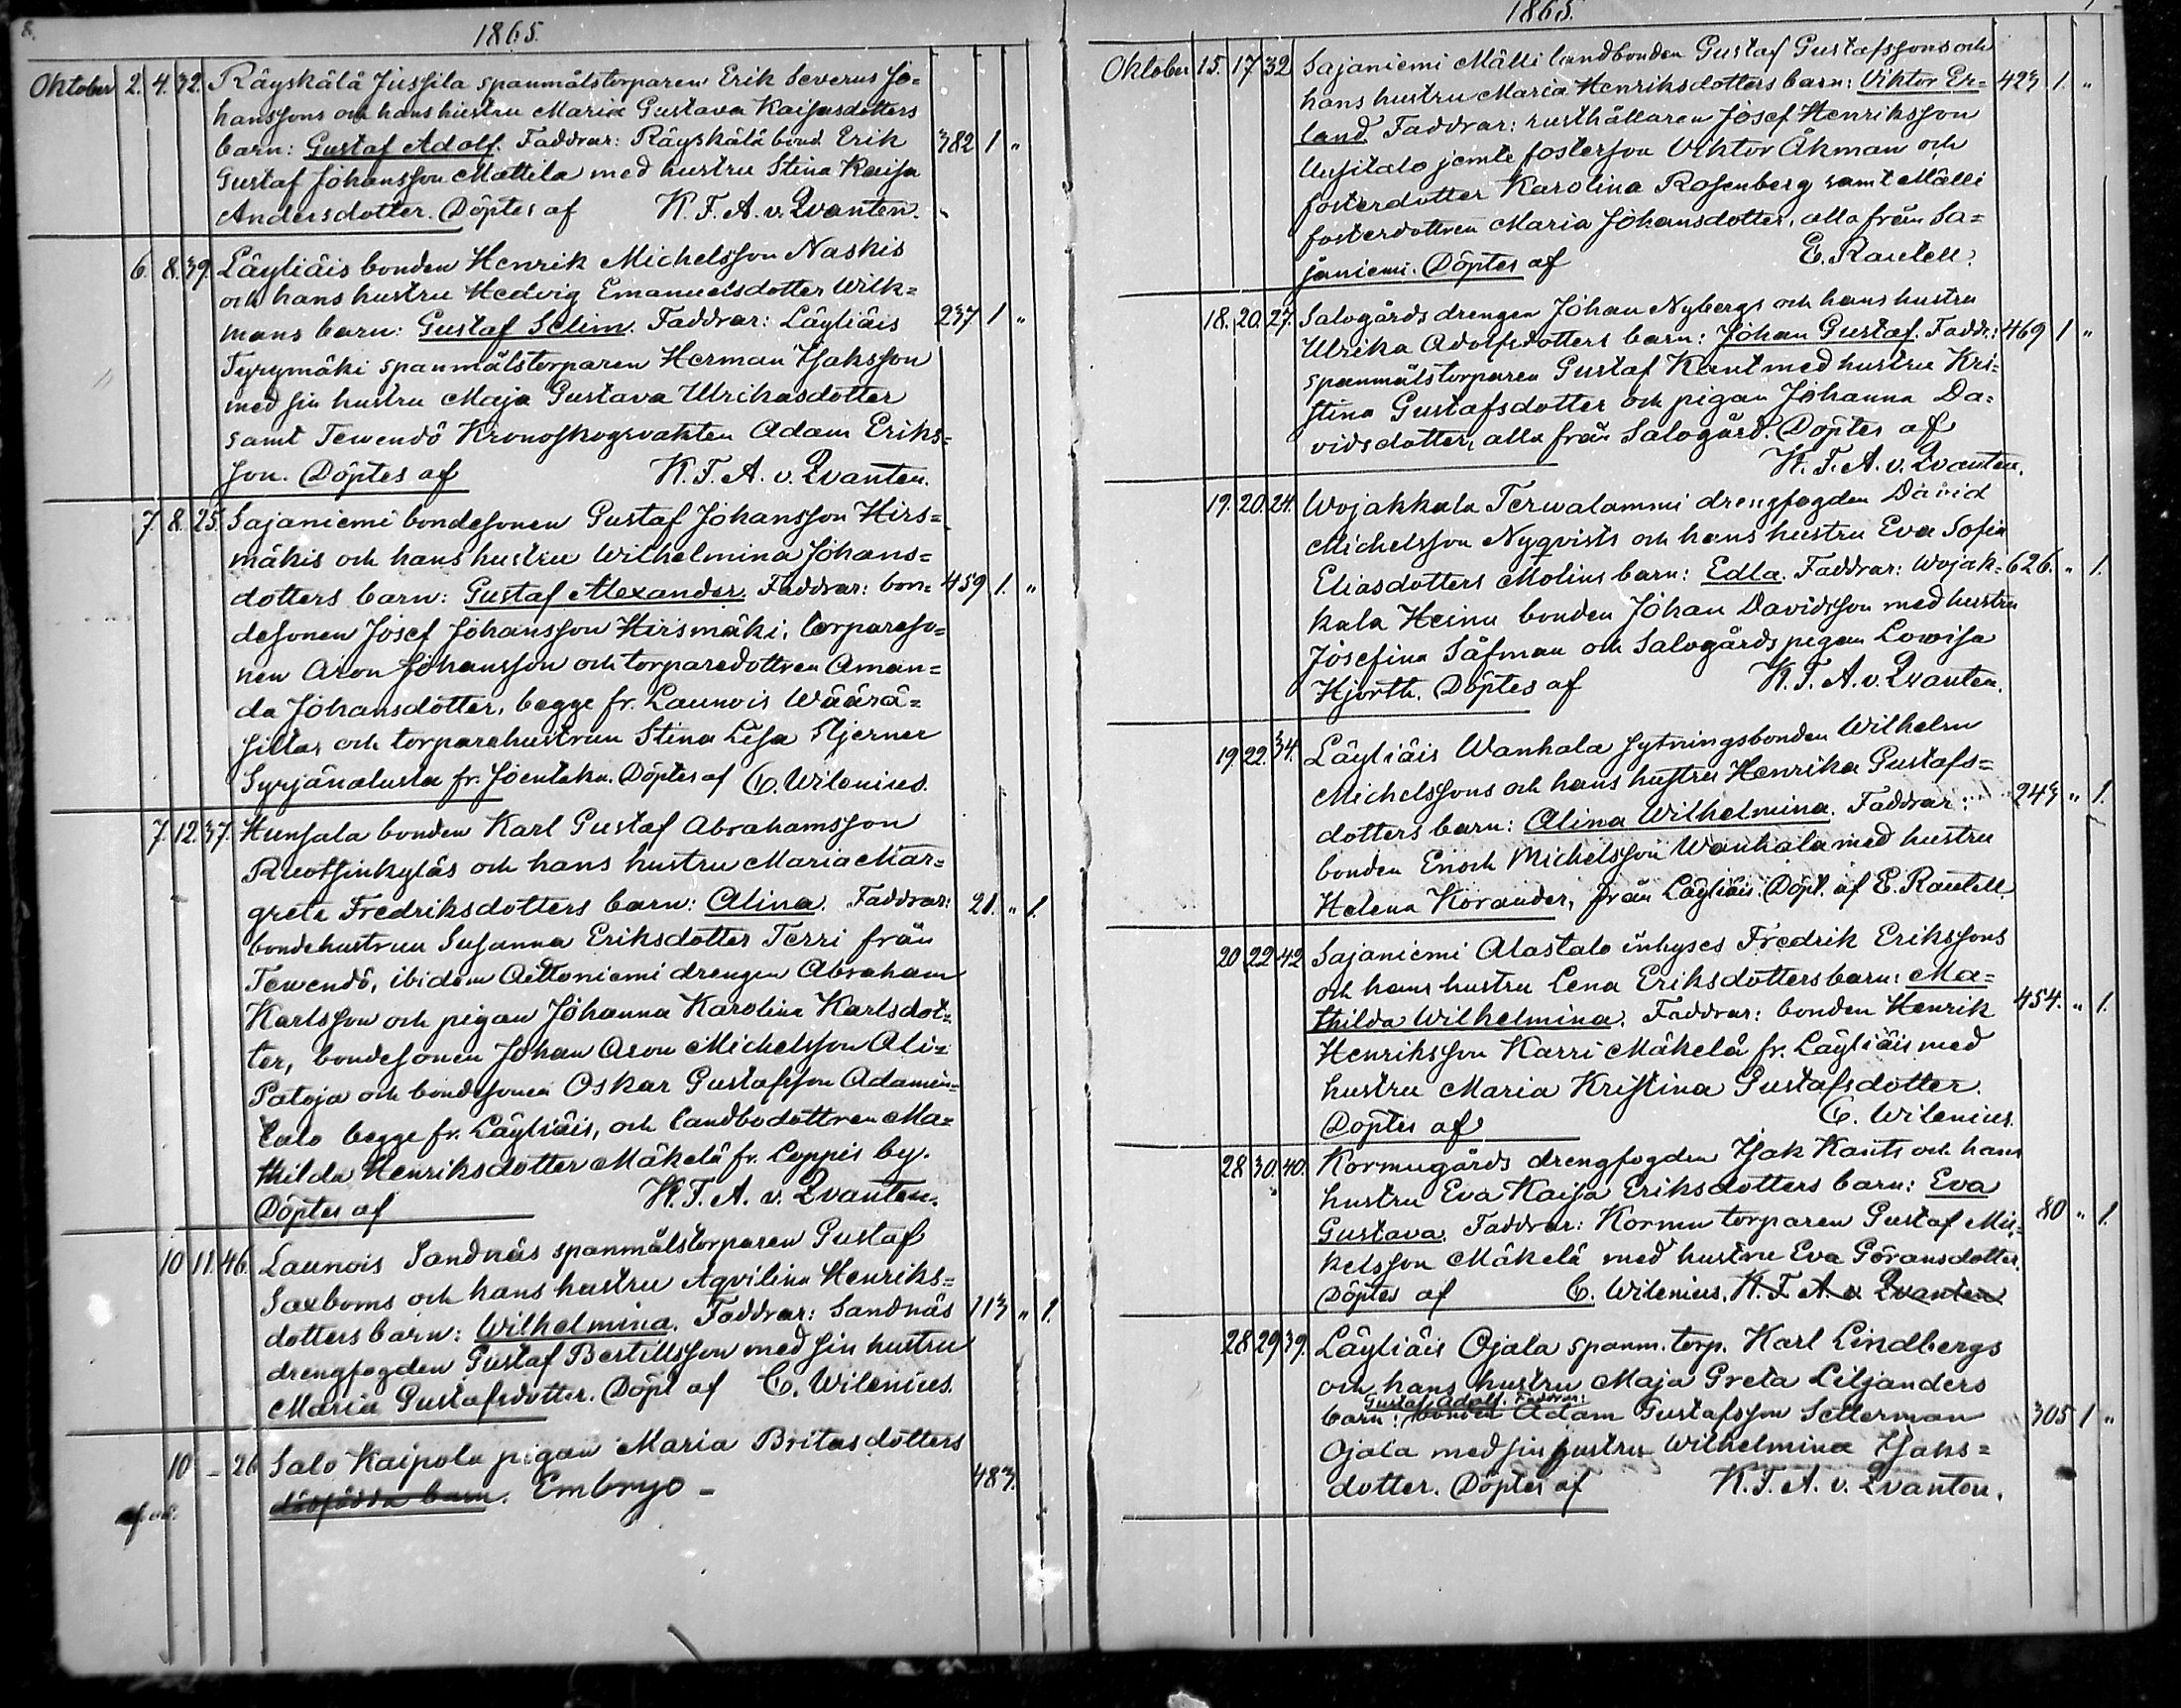 8.
1865.
Oktober 2. 4. 32. Räyskälä Jussila spanmålstorparen Erik Severus Jo=
hanssons och hans hustru Maria Gustava Kaisasdotters
barn: Gustaf Adolf. Faddrar: Räyskälä bond. Erik 382 1 "
Gustaf Johansson Mattila med hustru Stina Kaisa
Andersdotter. Döptes af K. F. A. v. Qvanten.
6. 8. 39. Läyliäis bonden Henrik Michelsson Naskis
och hans hustru Hedvig Emanuelsdotter Wilk=
mans barn: Gustaf Selim. Faddrar: Läyliäis 237 1 "
Tyrymäki spanmålstorparen Herman Isaksson
med sin hustru Maja Gustava Ulrikasdotter
samt Tewendö Kronoskogsvakten Adam Eriks=
son. Döptes af K. F. A. v. Qvanten.
7. 8. 25. Sajaniemi bondesonen Gustaf Johansson Hirs=
mäkis och hans hustru Wilhelmina Johans=
dotters barn: Gustaf Alexander. Faddrar: bon= 459 1. "
desonen Josef Johansson Hirsmäki, torpareso=
nen Aron Johansson och torparedottren Aman=
da Johansdotter, begge fr. Launois Wäärä=
siltas och torparehustrun Stina Lisa Stjerner
Syrjänalusta fr. Joentaka. Döptes af C. Wilenius.
7. 12. 37. Hunsala bonden Karl Gustaf Abrahamsson
Ruotsinkyläs och hans hustru Maria Mar=
greta Fredriksdotters barn: Alina. Faddrar: 21. " 1.
bondehustrun Susanna Eriksdotter Terri från
Tewendö, ibidem Aettoniemi drengen Abraham
Karlsson och pigan Johanna Karolina Karlsdot=
ter, bondesonen Johan Aron Michelsson Ali=
Patoja och bondesonen Oskar Gustafsson Adamin=
talo begge fr. Läyliäis, och landbodottren Ma=
thilda Henriksdotter Mäkelä fr. Loppis by.
Döptes af K. F. A. v. Qvanten.
10 11. 46. Launois Sandnäs spanmålstorparen Gustaf
Saxboms och hans hustru Aqvilina Henriks=
dotters barn: Wilhelmina. Faddrar: Sandnäs 113 " 1.
drengfogden Gustaf Bertillsson med sin hustru
Maria Gustafsdotter. Döpt af C. Wilenius.
10 – 26 Salo Kaipola pigan Maria Britasdotters
dödfödda barn. Embryo – 483.
1865.
Oktober 15. 17. 32 Sajaniemi Mälli landbonden Gustaf Gustafssons och
hans hustru Maria Henriksdotters barn: Viktor Er= 423 1. "
land. Faddrar: rusthållaren Josef Henriksson
Uusitalo jemte fosterson Viktor Åkman och
fosterdotter Karolina Rosenberg samt Mälli
fosterdottren Maria Johansdotter, alla från Sa=
janiemi. Döptes af E. Rautell.
18. 20. 27. Salogårds drengen Johan Nybergs och hans hustru
Ulrika Adolfsdotters barn: Johan Gustaf. Faddr.: 469 1 "
spanmålstorparen Gustaf Kant med hustru Kri=
stina Gustafsdotter och pigan Johanna Da=
vidsdotter, alla från Salogård. Döptes af
K. F. A. v. Qvanten.
19. 20. 24. Wojakkala Terwalammi drengfogden David
Michelsson Nyqvists och hans hustru Eva Sofia
Eliasdotters Molins barn: Edla. Faddrar: Wojak= 626. " 1.
kala Heinu bonden Johan Davidsson med hustru
Josefina Säfman och Salogårds pigan Lowisa
Hjorth. Döptes af K. F. A. v. Qvanten.
19 22. 34. Läyliäis Wanhala sytningsbonden Wilhelm
Michelssons och hans hustru Henrika Gustafs=
dotters barn: Alina Wilhelmina. Faddrar: 243 " 1.
bonden Enoch Michelsson Wanhala med hustru
Helena Korander, från Läyliäis. Döpt. af E. Rautell.
20 22 42 Sajaniemi Alastalo inhyses Fredrik Erikssons
och hans hustru Lena Eriksdotters barn: Ma=
thilda Wilhelmina. Faddrar: bonden Henrik 454. " 1.
Henriksson Karri Mäkelä fr. Läyliäis med
hustru Maria Kristina Gustafsdotter.
Döptes af C. Wilenius.
28 30. 40. Kormugårds drengfogden Isak Kants och hans
hustru Eva Kaisa Eriksdotters barn: Eva
Gustava. Faddrar: Kormu torparen Gustaf Mi= 80 " 1.
kelsson Mäkelä med hustru Eva Göransdotter.
Döptes af C. Wilenius. K. F. A. v. Qvanten
28 29 39. Läyliäis Ojala spanm. torp. Karl Lindbergs
och hans hustru Maja Greta Liljanders
Gustaf Adolf. Faddrar:
barn: bonden Adam Gustafsson Setterman 305 1 "
Ojala med sin hustru Wilhelmina Isaks=
dotter. Döptes af K. F. A. v. Qvanten.